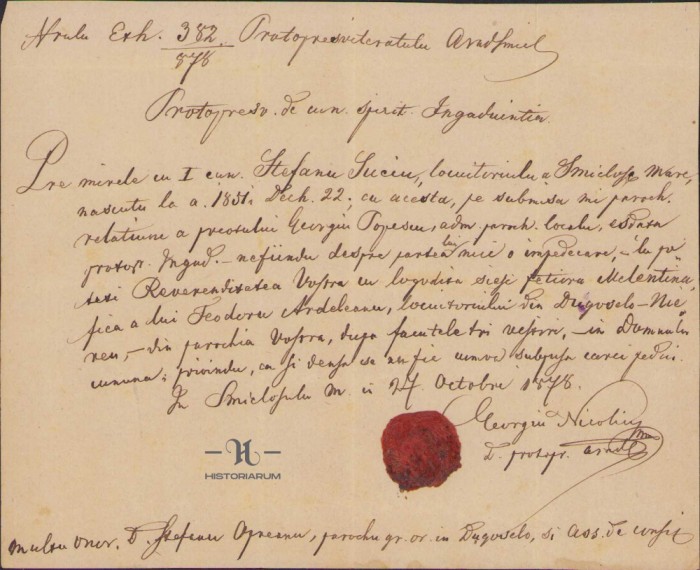 Nrulu Exh. 382/878. Protopresviteratulu Aradului
Protopresv. de cun. spirit. Ingaduintia
Pre mirele cu I cun. Stefanu Suciu, locuitoriulu a Smiclosu Mare,
nascutu la a. 1851, Dech. 22; cu acesta, pe submisa mi paroch.
relatiune a preotului Georgiu Popescu, adm. paroch. localu, esdata
protopr. Ingad. – nefiindu despre partea lui nici o impedecare, – 'lu po
teti Reverenditatea Vostra cu logodita sieși fetiora Melentina,
fica a lui Teodoru Ardeleanu, locuitoriului din Dugoselo-Nie
reu, – din parochia Vostra, dupa facutele tri vestiri, – in Domnulu
cununa; privindu, ca si densa se nu fie cumva subpusa carei pedici.
In Smiclosulu M. in 27. Octobre 1878.
Georgiu
D. protopr.
HISTORIARUM
Multu Onor. D. Stefanu Opreanu, parochu gr. or. in Dugoselo, si Ass. de consist